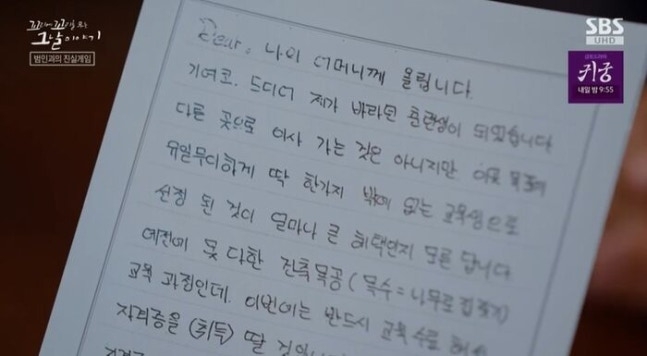 꼬리에 꼬리를 무는
그날 이야기
범인과의 진실게임
SBS
UHD
귀궁
내일 밤 9:55
Dear. 나의 어머니께 올립니다.
기여코. 드디어 제가 바라던 훈련생이 되었습니다
다른 곳으로 이사 가는 것은 아니지만 이곳
유일무이하게 딱 한가지 밖에 없는 교육생으로
선정 된 것이 얼마나 큰 혜택인지 모른 답니다.
예전에 못 다한 건축목공 ( 목수 = 나무로 집짓기)
교육 과정인데. 이번에는 반드시 교육
자격증을 (취득) 딸